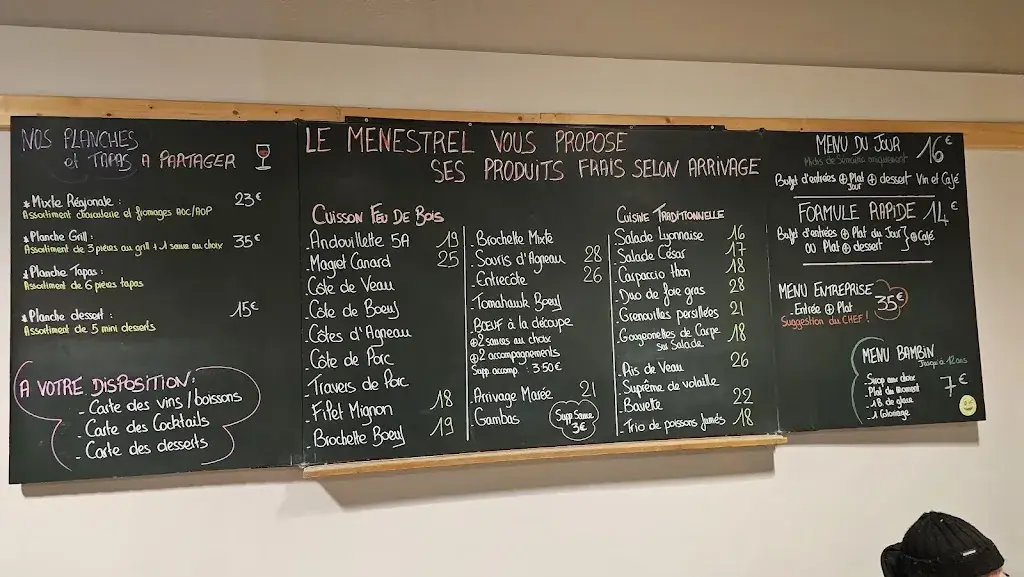 NOS PLANCHES
et TAPAS A PARTAGER
* Mixte Régionale : 23€
Assortiment charcuterie et fromages AOC/AOP
* Planche Grill : 35€
Assortiment de 3 pièces au grill + 1 sauce au choix
* Planche Tapas :
Assortiment de 6 pièces tapas
* Planche dessert : 15€
Assortiment de 5 mini desserts
A VOTRE DISPOSITION:
- Carte des vins / boissons
- Carte des Cocktails
- Carte des desserts
LE MENESTREL VOUS PROPOSE
SES PRODUITS FRAIS SELON ARRIVAGE
CUISSON FEU DE BOIS
- Andouillette 5A 19
- Magret Canard 25
- Côte de Veau
- Côte de Boeuf
- Côtes d'Agneau
- Côte de Porc
- Travers de Porc
- Filet Mignon 18
- Brochette Boeuf 19
- Brochette Mixte
- Souris d'Agneau 28
- Entrecôte 26
- Tomahawk Boeuf
- BŒUF à la découpe
⊕ 2 sauces au choix
⊕ 2 accompagnements
Supp accomp : 3.50€
- Arrivage Marée 21
- Gambas
Supp Sauce
3€
CUISINE TRADITIONNELLE
- Salade Lyonnaise 16
- Salade César 17
- Carpaccio thon 18
- Duo de foie gras 28
- Grenouilles persillées 21
- Gougonettes de Carpe 18
sur Salade
- Ris de Veau 26
- Suprême de volaille
- Bavette 22
- Trio de poissons fumés 18
MENU DU JOUR 16€
Midis de Semaine uniquement
Buffet d'entrées ⊕ Plat Jour ⊕ dessert Vin et Café
FORMULE RAPIDE 14€
Buffet d'entrées ⊕ Plat du Jour } ⊕ Café
OU Plat ⊕ dessert
MENU ENTREPRISE
- Entrée ⊕ Plat 35€
Suggestion du CHEF !
MENU BAMBIN
Jusqu'à 12 ans
- Sirop aux choix
- Plat du moment 7€
- 1 B. de glace
- 1 Coloriage